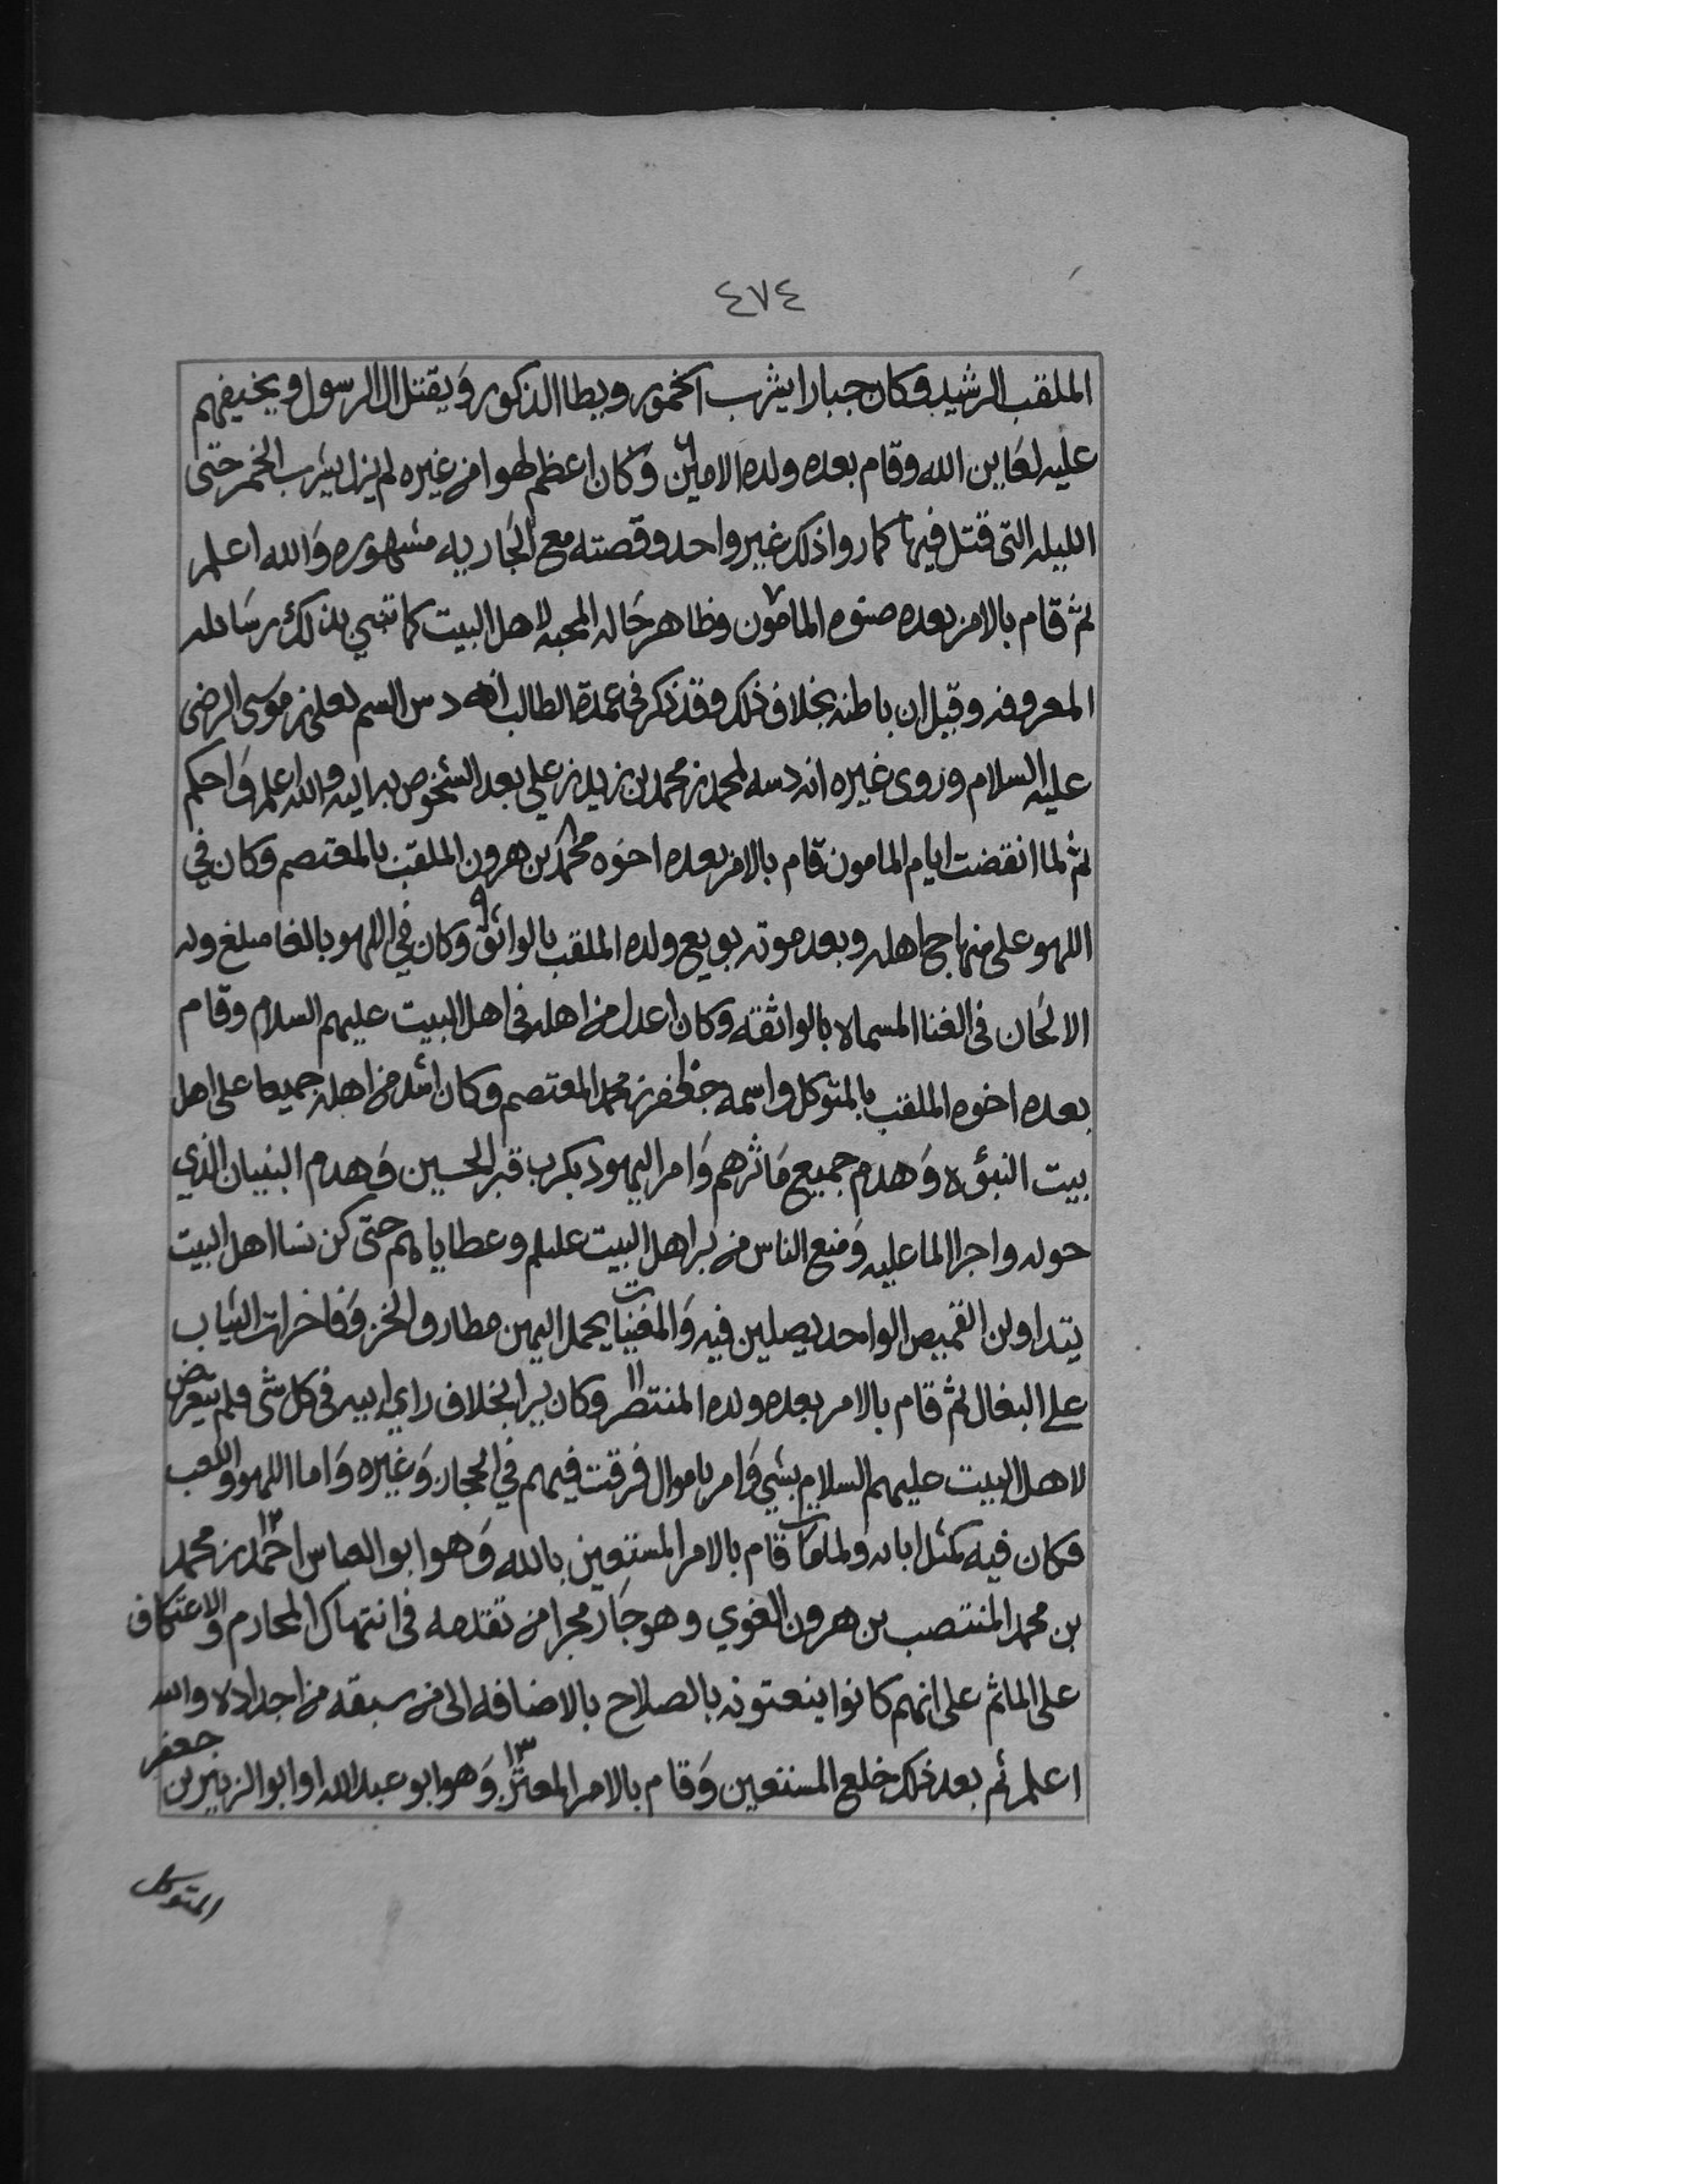 ٤٧٤
الملقب الرشيد وكان جبارا يشرب الخمور ويطا الذكور ويقتل ال الرسول ويخيفهم
عليه لعاين الله وقام بعده ولده الامين ٦ وكان اعظم لهوا من غيره لم يزل يشرب الخمر حتى
الليله التى قتل فيها كما روا ذلك غير واحد وقصته مع الجاريه مشهوره والله اعلم
ثم قام بالامر بعده صنوه المامون ٧ وظاهر حاله المحبه لاهل البيت كما تنبي بذلك رسائله
المعروفه وقيل ان باطنه بخلاف ذلك وقد ذكر في عمدة الطالب انه دس السم لعلي بن موسى الرضى
عليه السلام وروى غيره انه دسه لمحمد بن محمد بن زيد بن علي بعد الشخوص به اليه والله اعلم واحكم
ثم لما انقضت ايام المامون قام بالامر بعده اخوه محمد ٨ بن هرون الملقب بالمعتصم وكان في
اللهو على منهاج اهله وبعد موته بويع ولده الملقب بالواثق ٩ وكان في اللهو بالغا مبلغ وله
الالحان في الغنا المسماه بالواثقه وكان اعدل من اهله في اهل البيت عليهم السلام وقام
بعده اخوه الملقب بالمتوكل واسمه جعفر بن محمد المعتصم وكان اشد من اهله جميعا على اهل
بيت النبؤه وهدم جميع مَاثرهم وامر اليهود بكرب قبر الحسين وهدم البنيان الذي
حوله واجرا الما عليه ومنع الناس من بر اهل البيت عليلم وعطاياهم حتى كن نسا اهل البيت
يتداولن القميص الواحد يصلين فيه والمغنيات يحمل اليهن مطارف الخز وفاخرات الثياب
على البغال ثم قام بالامر بعده ولده المنتصر ١١ وكان يرا بخلاف راي ابيه في كل شى فلم يتعرض
لاهل البيت عليهم السلام بشي وامر باموال فرقت فيهم في الحجاز وغيره واما اللهو واللعب
فكان فيه كمثل ابائه ولما مات قام بالامر المستعين بالله وهو ابو العباس احمد ١٢ بن محمد
بن محمد المنتصب بن هرون الغوي وهو جار مجرا من تقدمه في انتهاك المحارم والاعتكاف
على الماثم على انهم كانوا ينعتونه بالصلاح بالاضافه الى من سبقه من اجداده والله
اعلم ثم بعد ذلك خلع المستعين وقام بالامر المعتز ١٣ وهو ابو عبدالله او ابو الزبير بن جعفر
المتوكل